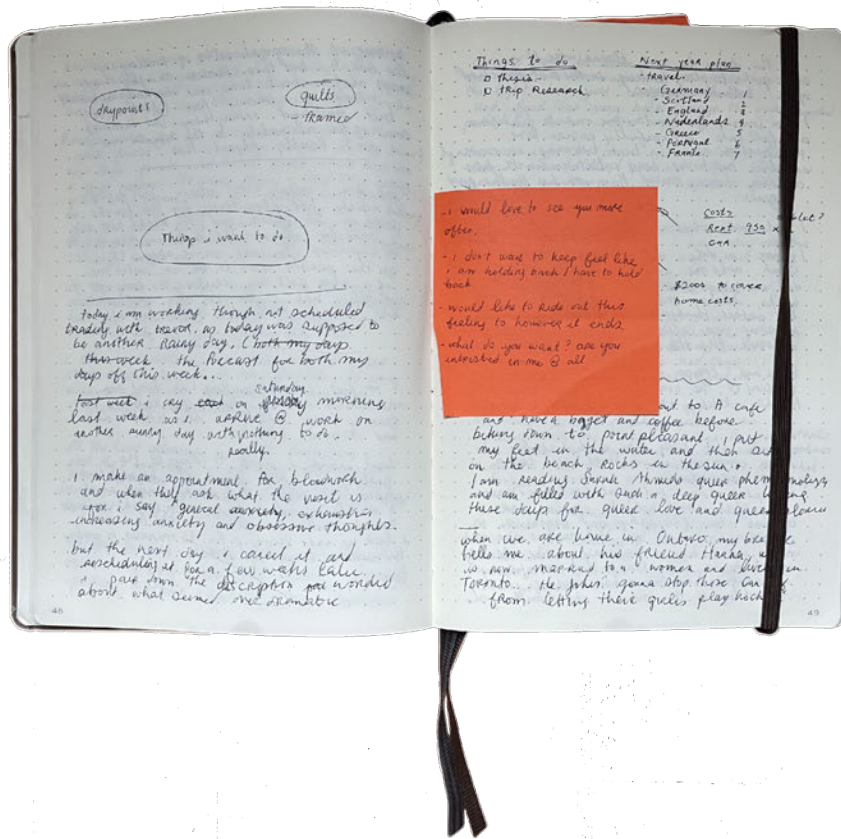 drypoints
quilts
- framed
Things i want to do
today i am working though not scheduled
trading with trevor, as today was supposed to
be another rainy day, (both my days
this week the forecast for both my
days off this week...
last week i cry on saturday morning
last week as i arrive @ work on
another sunny day with nothing to do.
really.
i make an appointment for bloodwork
and when they ask what the visit is
for i say "general anxiety, exhaustion
increasing anxiety and obsessive thoughts.
but the next day i cancel it and
rescheduling it for a few weeks later
i pare down the description worded
about what seemed over dramatic
48
Things to do
Thesis
trip Research
Next year plan
- travel
- Germany 1
- Scotland 2
- England 3
- Nederlands 4
- Greece 5
- Portugal 6
- France 7
- i would love to see you more
often.
- i don't want to keep feel like
i am holding back / have to hold
back
- would like to ride out this
feeling to however it ends.
- what do you want? are you
interested in me @ all
costs
Rent 950 x
car.
$2000 to cover
home costs.
out to A cafe
and have a bagel and coffee before
biking down to point pleasant, i put
my feet in the water and then
on the beach rocks in the sun.
I am reading Sarah Ahmeds queer
and am filled with such a deep queer
these days for queer love and queer
when we are home in Ontario, my
tells me about his friend Hannah,
is now married to a women and
Toronto. He jokes, gonna stop these
from letting their girls play
49